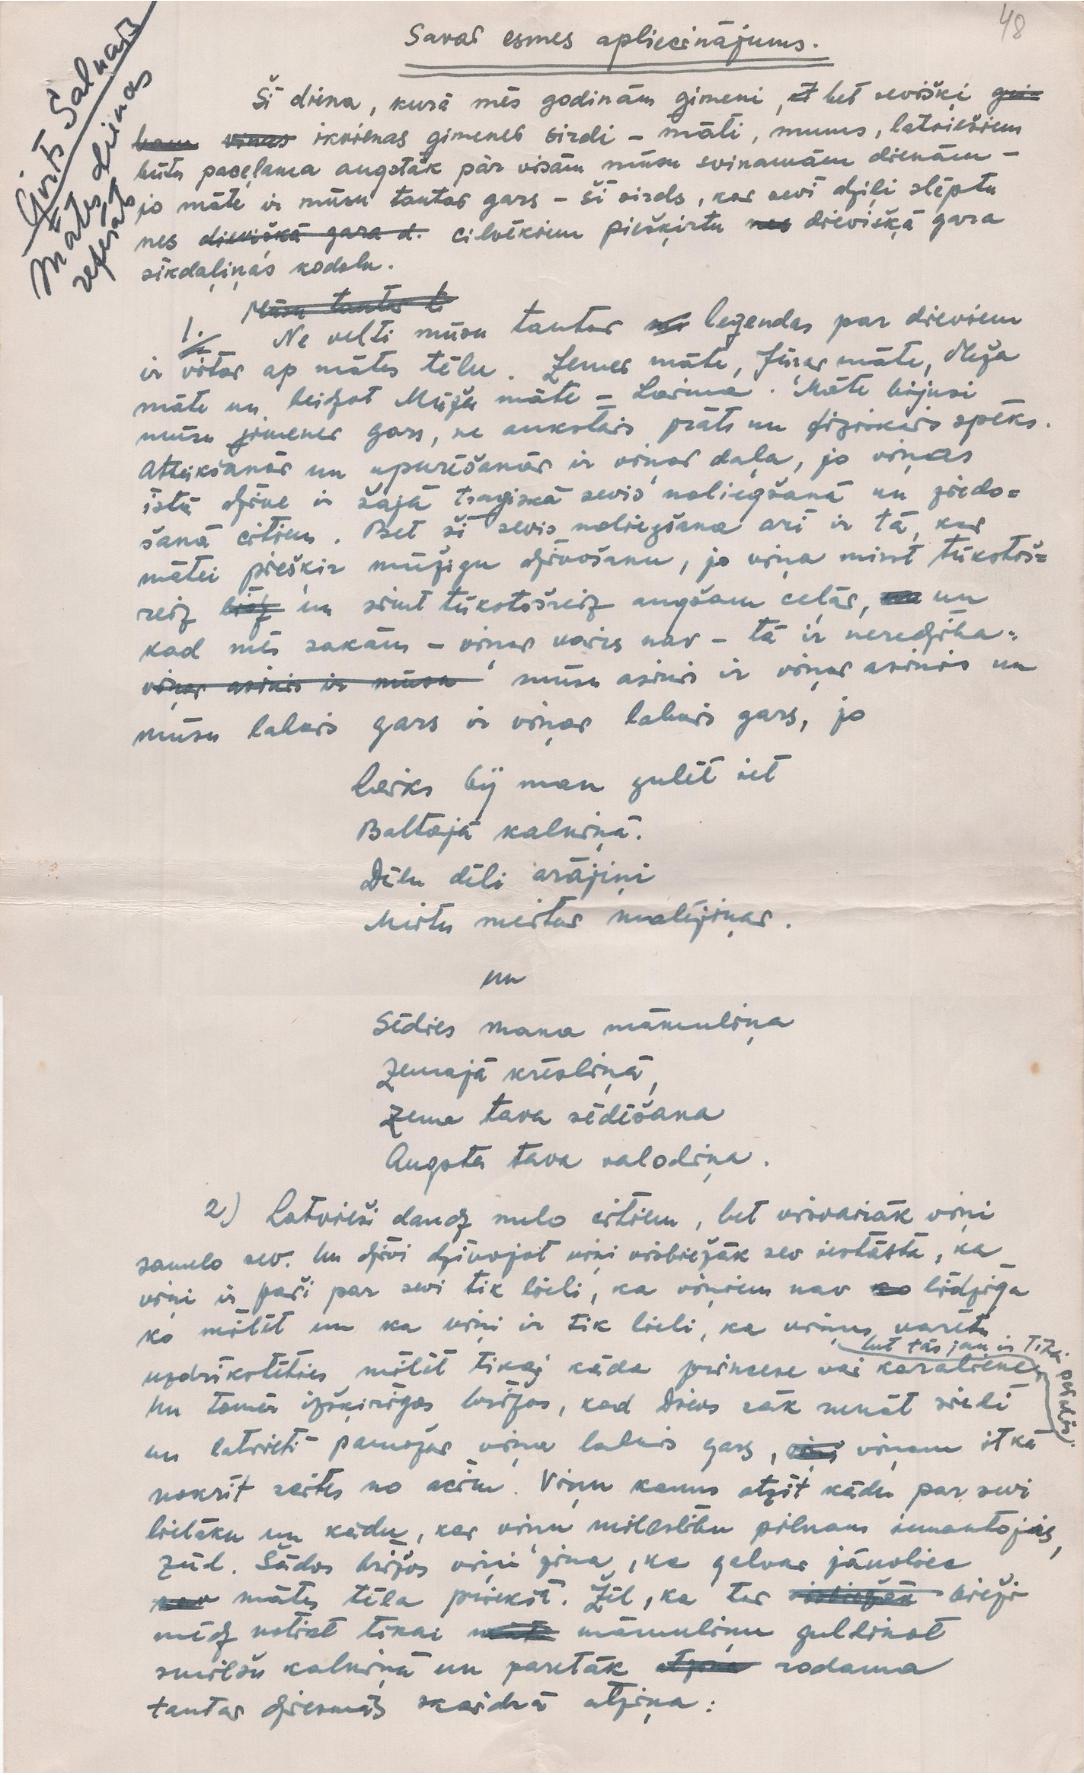 48
Ģirts Salnais
Mātes dienas
referāts
Savas esmes apliecinājums.
Šī diena, kurā mēs godinām ģimeni, et bet sevišķi ģui-
ikvienas ģimenes sirdi – māti, mums, latviešiem
būtu paceļama augstāk pār visām mūsu svinamām dienām –
jo māte ir mūsu tautas gars – šī sirds, kas sevī dziļi slēptu
nes dievišķā gara d. cilvēkiem piešķirtu nes dievišķā gara
sīkdaļiņas kodolu.
Mūsu tautas l
1. Ne velti mūsu tautas leģendas par dieviem
ir vītas ap mātes tēlu. Zemes māte, Jūras māte, Meža
māte un beidzot Mūža māte = Laima. Māte bijusi
mūsu ģimenes gars, ne aukstais prāts un fiziskais spēks.
Atteikšanās un upurēšanās ir viņas daļa, jo viņas
īstā dzīve ir šajā traģiskā sevis noliegšanā un ziedo=
šanā citiem. Bet šī sevis noliegšana arī ir tā, kas
mātei piešķir mūžīgu dzīvošanu, jo viņa mirst tūkstoš=
reiz un simt tūkstošreiz augšam ceļas, un
kad mēs sakām – viņas vairs nav – tā ir neredzība:
viņas asinis ir mūsu mūsu asinis ir viņas asinis un
mūsu labais gars ir viņas labais gars, jo
Laiks bij man gulēt iet
Baltajā kalniņā.
Dēlu dēli arājiņi
Meitu meitas malējiņas.
un
Sēdies mana māmuliņa
Zemajā krēsliņā,
Zema tava sēdēšana
Augsta tava valodiņa.
2.) Latvieši daudz mīlo citiem, bet visvairāk viņi
samelo sev. Un dzīvi dzīvojot viņi visbiežāk sev iestāsta, ka
viņi ir paši par sevi tik lieli, ka viņiem nav līdzīga
ko mīlēt un ka viņi ir tik lieli, ka viņus varētu
bet tās jau ir tik pasakās
uzdrīkstēties mīlēt tikai kāda princese vai karaliene,
Un tomēr izšķirīgos brīžos, kad Dievs sāk runāt sirdī
un latvietī pamostas viņa labais gars, viņam it kā
nokrīt saites no acīm. Viņu kauns atzīt kādu par sevi
lielāku un kādu, kas viņu mīlestību pilnam izmantojas,
zūd. Šādos brīžos viņi zina, ka galvas jānoliec
mātes tēla priekšā. Žēl, ka tas visbiežāk bieži
mēdz notikt tikai māmuliņu guldinot
smilšu kalniņā un paretāk atziņa rodama
tautas dziesmās skaidrā atziņa: